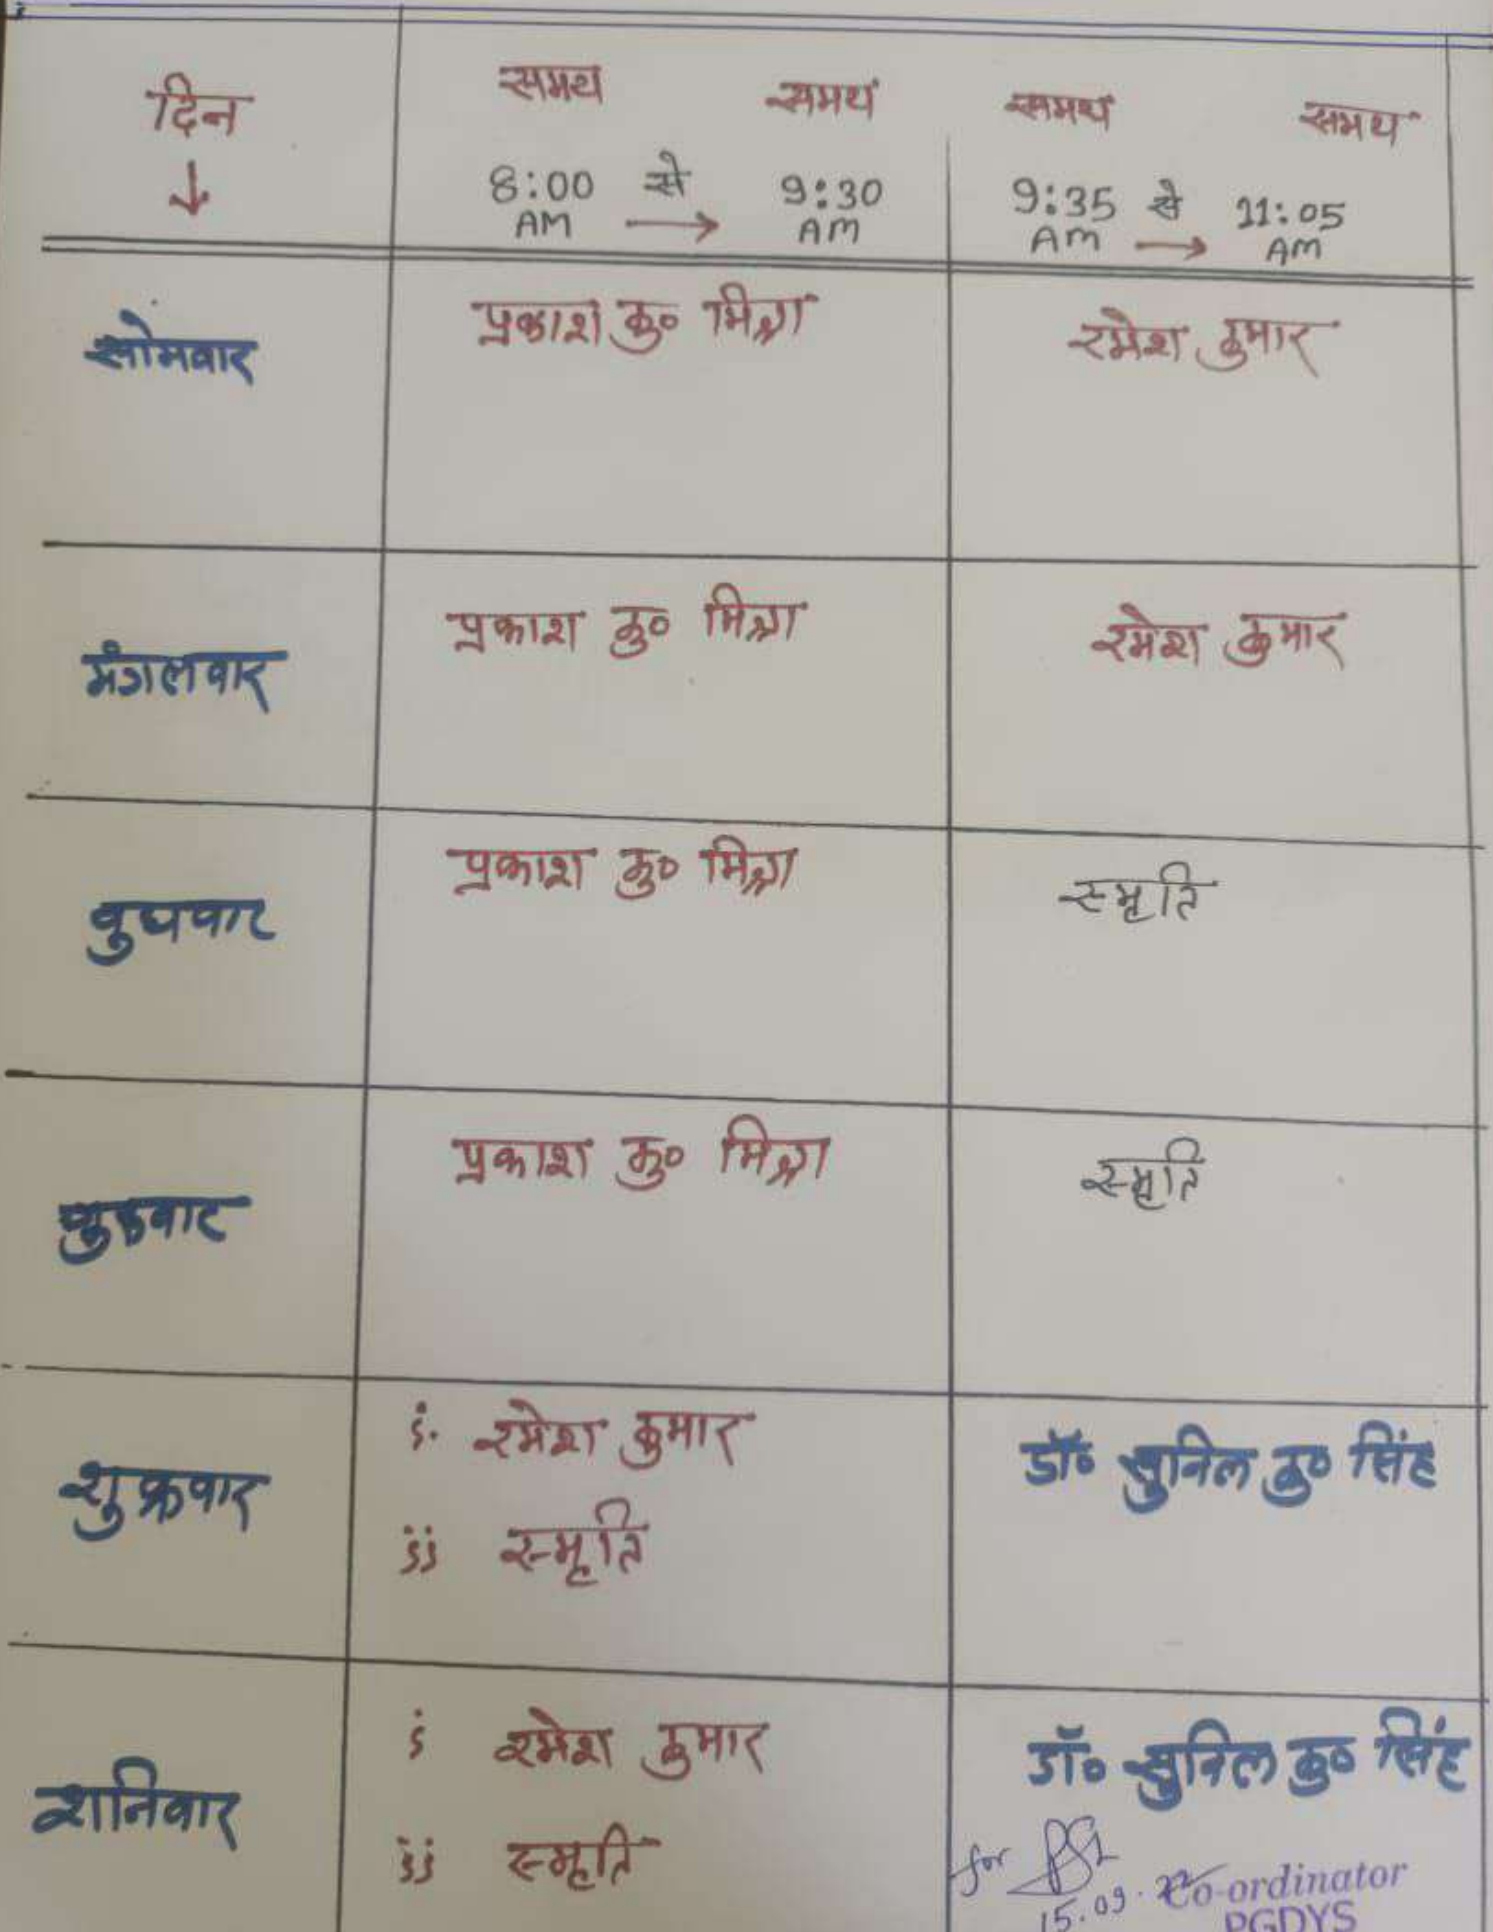 दिन समय समय समय समय
↓ 8:00 AM से → 9:30 AM 9:35 AM से → 11:05 AM
सोमवार प्रकाश कु० मिश्रा रमेश कुमार
मंगलवार प्रकाश कु० मिश्रा रमेश कुमार
बुधवार प्रकाश कु० मिश्रा स्मृति
प्रकाश कु० मिश्रा स्मृति
शुक्रवार i. रमेश कुमार डॉ० सुनिल कु० सिंह
ii स्मृति
शनिवार i रमेश कुमार डॉ० सुनिल कु० सिंह
ii स्मृति
for
15.09. Co-ordinator
PGDYS